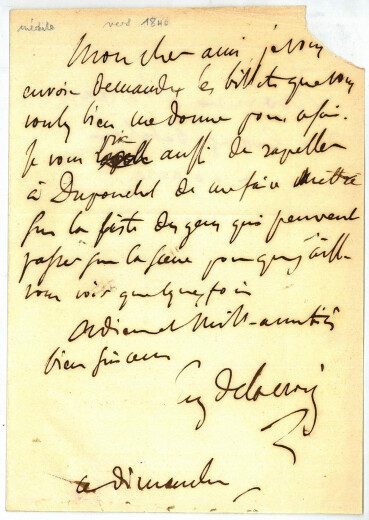 inédite vers 1840
Mon cher ami, je vous
envoie demander les billets que vous
voulez bien me donner pour ce soir.
Je vous prie aussi de rappeller
à Duponchel de me faire mettre
sur la liste des gens qui peuvent
passer sur la scène pour que j'aille
vous voir quelquefois
Adieu et mille amitiés
bien sincères
Eug Delacroix
ce dimanche